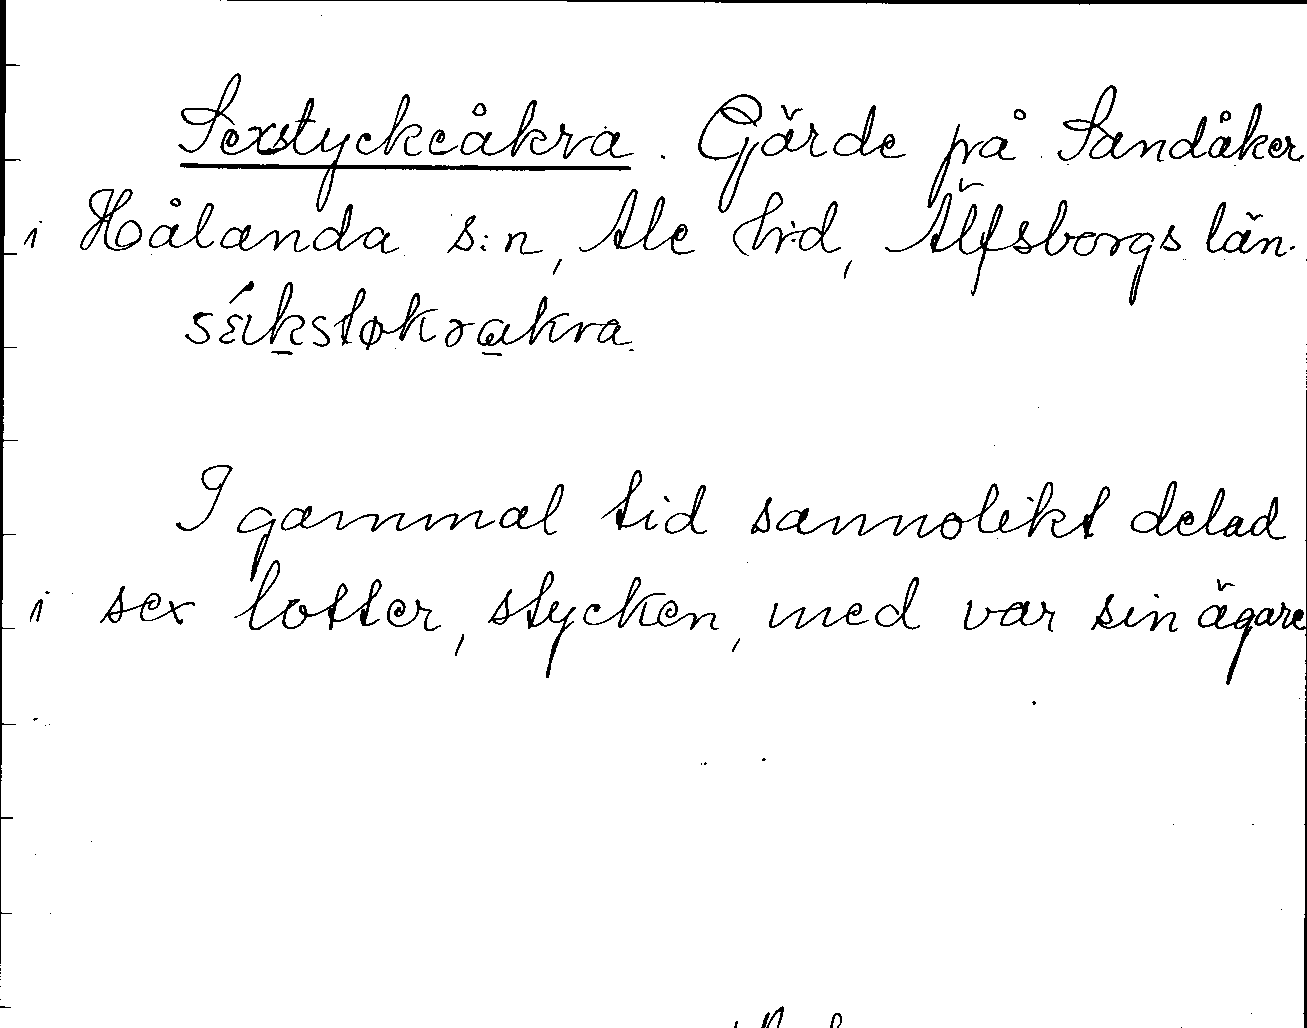 Sexstyckeåkra. Gärde på Sandåker
i Hålanda s:n, Ale h:d, Älfsborgs län.
I gammal tid sannolikt delad
i sex lotter, stycken, med var sin ägare